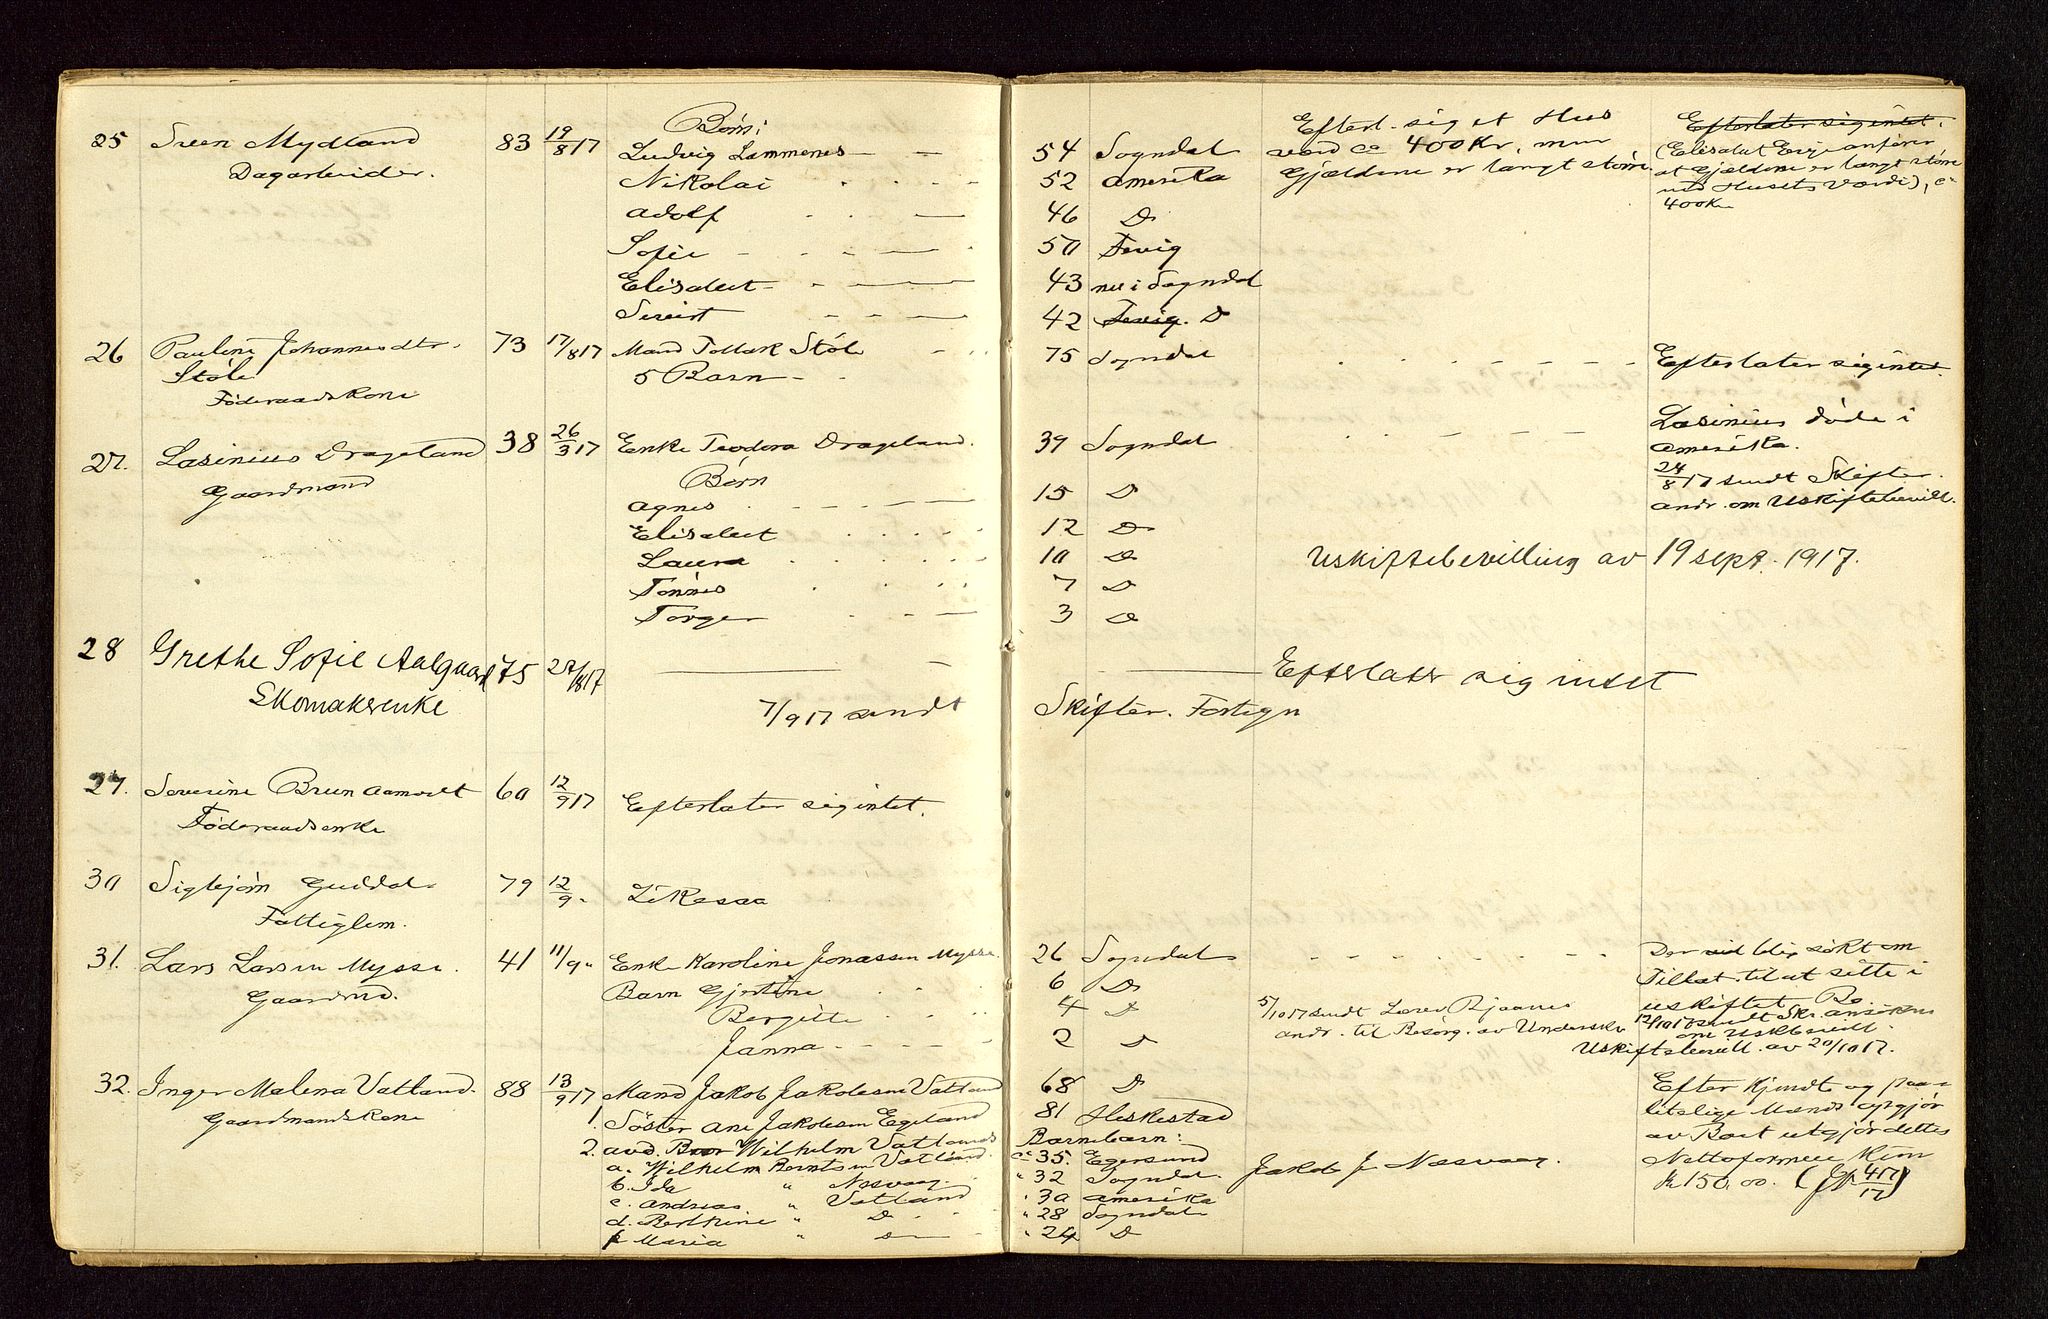 Børn:
25 Sven Mydland 83 19/8 17 Ludvig Lammenes — — 54 Sogndal
Dagarbeider. Nikolai . . - - 52 Amerika
Adolf . . — 46 D
Sofie - . — — 50 Fevig
Elisabet - . — 43 nu i Sogndal
Sivert - - — 42 Fevig. D
Efterl. sig et Hus
værd ca 400 Kr, men
Gjælden er langt større
Efterlater sig intet.
(Elisabet Egje anfører
at Gjælden er langt større
end Husets værdi), ca
400 Kr
26 Pauline Johannesdtr. 73 17/8 17 Mand Tollak Støle - . . 75 Sogndal . . - - - - Efterlater sig intet.
Støle 5 Barn - -
Føderaadskone
27. Lasinius Drageland 38 26/3 17 Enke Teodora Drageland. 39 Sogndal . . - — —
Gaardmand Børn
Agnes . - - — — 15 D
Elisabet . . . . 12 D
Laura . . . . 10 D
Tønnes . . . 7 D
Torger . - — 3 D
Lasinius døde i
Amerika.
24/8 17 sendt Skifter.
andr. om Uskiftebevill.
Uskiftebevilling av 19 sept. 1917.
28 Grethe Sofie Aalgaard 75 27/8 17 — — — Efterlater sig intet
Skomakerenke 7/9 17 sendt Skifter. Fortegn
29. Severine Bruun Aamodt 60 12/9 17 Efterlater sig intet.
Føderaadsenke
30 Sigbjørn Guddal 79 12/9 " Likesaa
Fattiglem.
31. Lars Larsen Mysse. 41 11/9 " Enke Karoline Jonassen Mysse. 26 Sogndal - - - - - -
Gaardmd. Barn Gjertine . . 6 D
Bergitte . . . 4 D
Janna - - - — 2 D
Der vil bli søkt om
Tillat. til at sitte i
uskiftet Bo.
5/10 17 sendt Lensm Bjaanes
andr. til Besørg. av Underskr
12/10 17 sendt Skr. ansøkn
om Uskbevill.
Uskiftebevill. av 20/10 17.
32. Inger Malena Vatland. 88 13/9 17 Mand Jakob Jakobsen Vatland 68 D
Gaardmandskone 1. Søster Ane Jakobsen Egeland 81 Heskestad
2. avd. Bror Wilhelm Vatlands Barnebarn:
a. Wilhelm Berntsen Vatland. ca 35. Egersund
b. Ida " Nesvaag. " 32 Sogndal.
c. Andreas " Vatland " 30 Amerika
d. Berthine " D . . " 28 Sogndal
f Maria " D — - " 24 D
Jakob J Nesvaag.
Efter kjendte og paa-
litelige Mænds opgjør
av Boet utgjør dettes
Nettoformue Kun
Kr 150.00. (Jr 417/17)